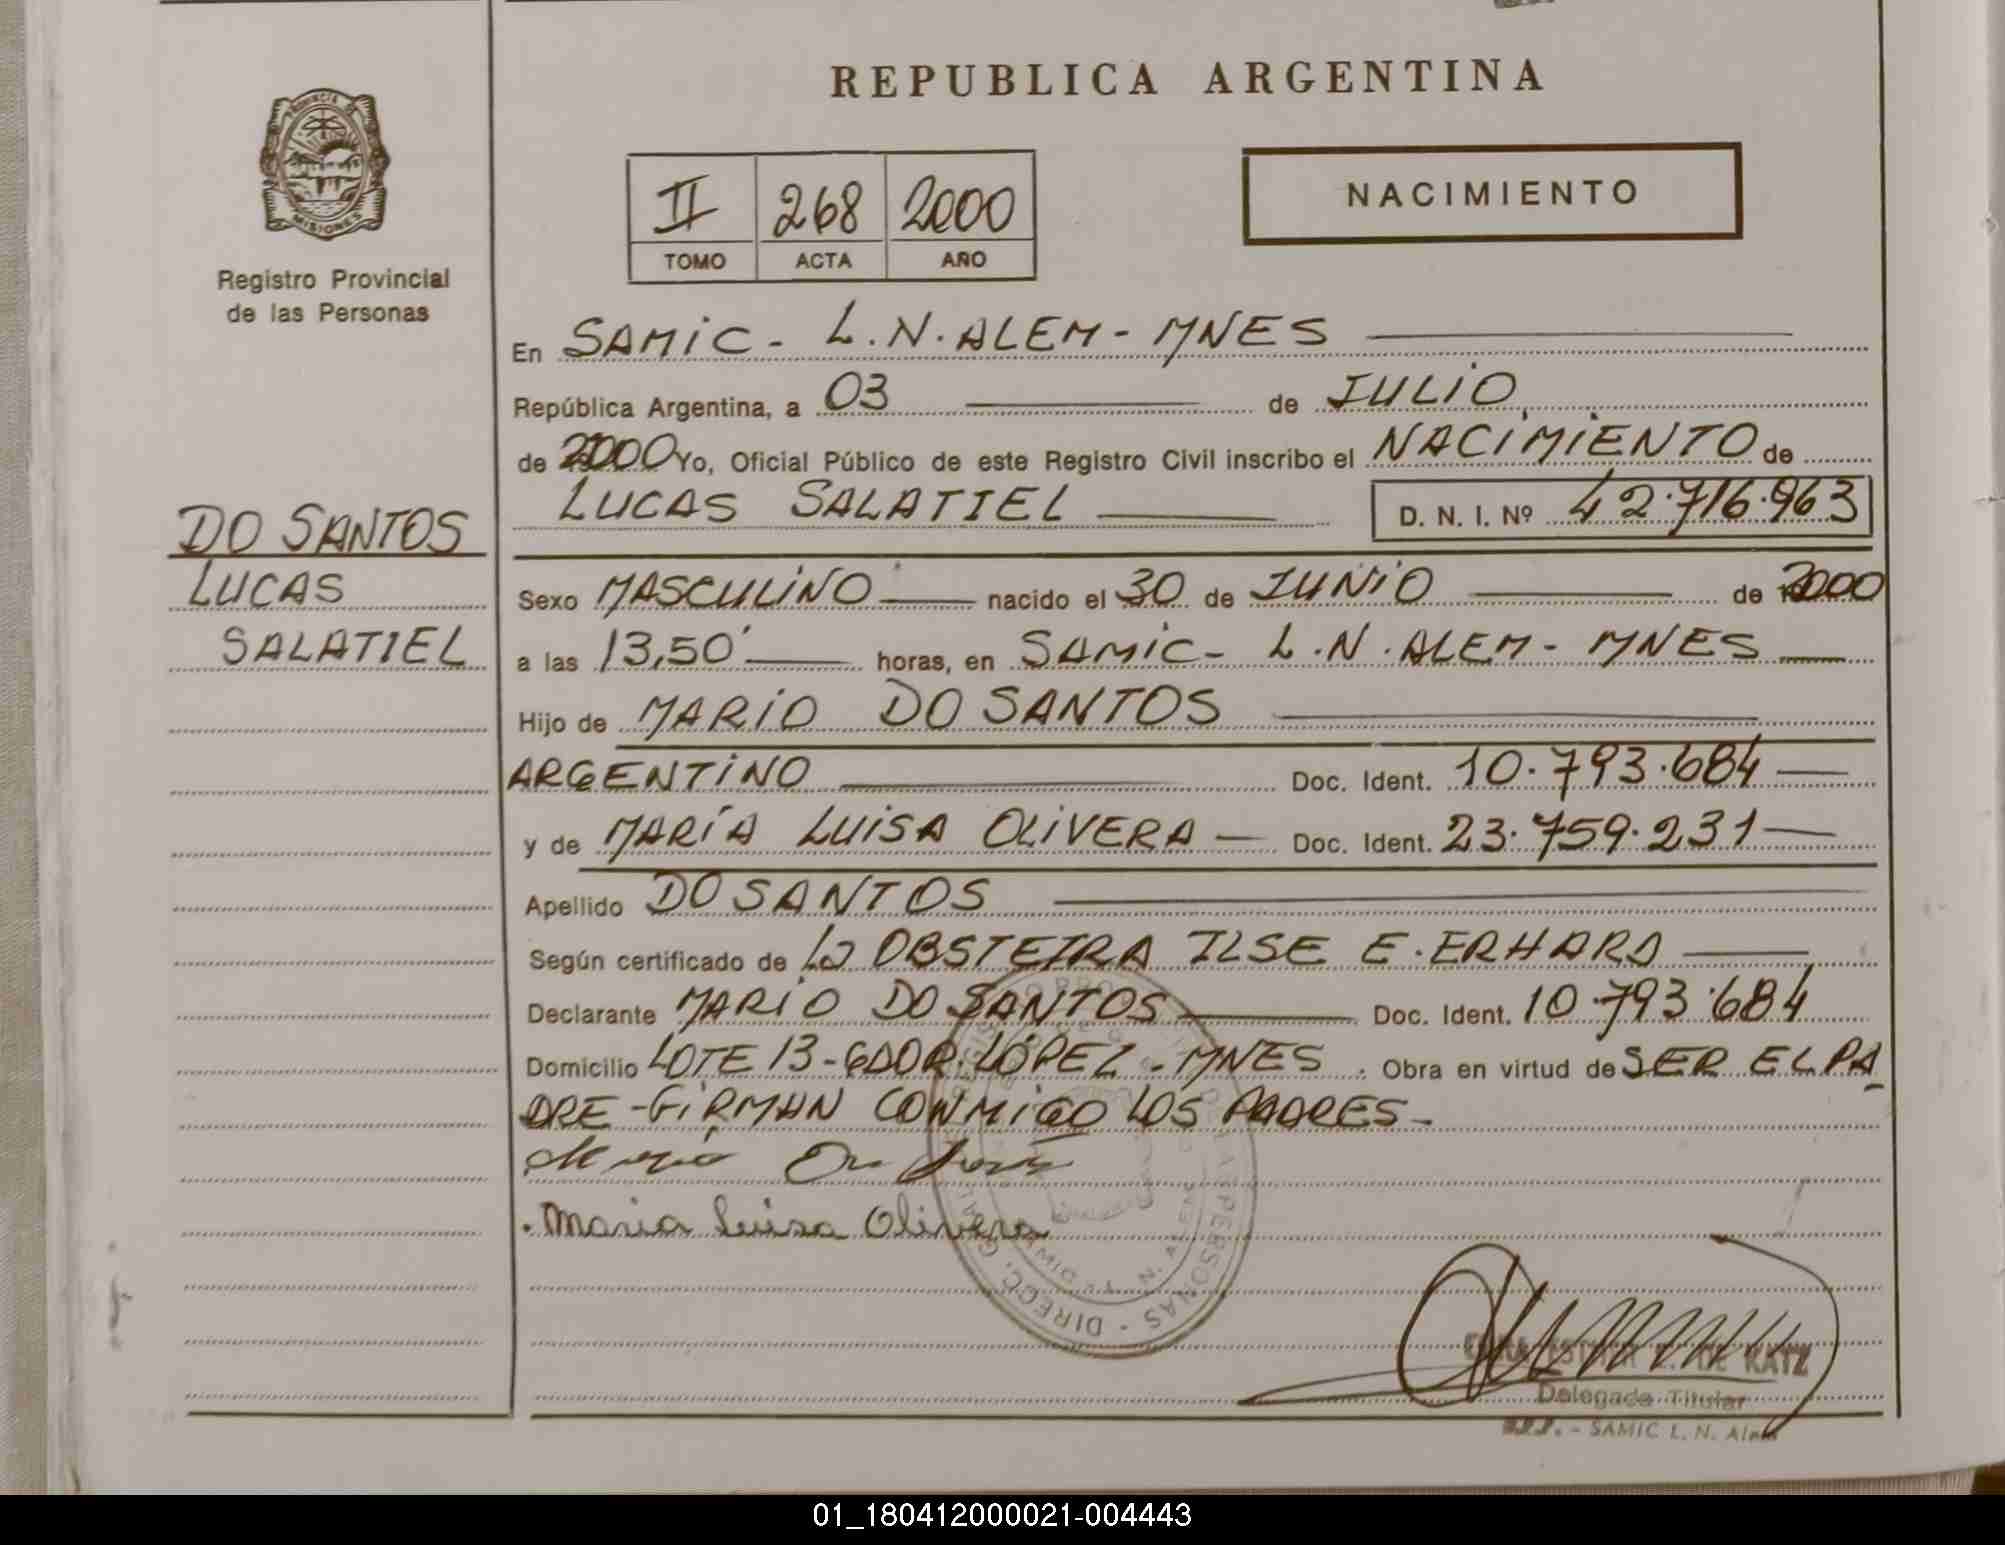 REPUBLICA ARGENTINA
PROVINCIA DE MISIONES
Registro Provincial
de las Personas
II 268 2000
TOMO ACTA AÑO
NACIMIENTO
En SAMIC - L.N. ALEM - MNES
República Argentina, a 03 de JULIO
de 2000 Yo, Oficial Público de este Registro Civil inscribo el NACIMIENTO de
LUCAS SALATIEL D. N. I. Nº 42.716.963
DO SANTOS
LUCAS
SALATIEL
Sexo MASCULINO nacido el 30 de JUNIO de 2000
a las 13,50' horas, en SAMIC - L.N. ALEM - MNES
Hijo de MARIO DO SANTOS
ARGENTINO Doc. Ident. 10.793.684
y de MARÍA LUISA OLIVERA Doc. Ident. 23.759.231
Apellido DO SANTOS
Según certificado de La OBSTETRA ILSE E. ERHARD
Declarante MARIO DO SANTOS Doc. Ident. 10.793.684
Domicilio LOTE 13 - GDOR. LÓPEZ - MNES. Obra en virtud de SER EL PA
DRE - FIRMAN CONMIGO LOS PADRES -
Maria Luisa Olivera
PERSONAS - DIREC. GRAL.
DE KATZ
Delegada Titular
SAMIC L. N. Alem
01_180412000021-004443